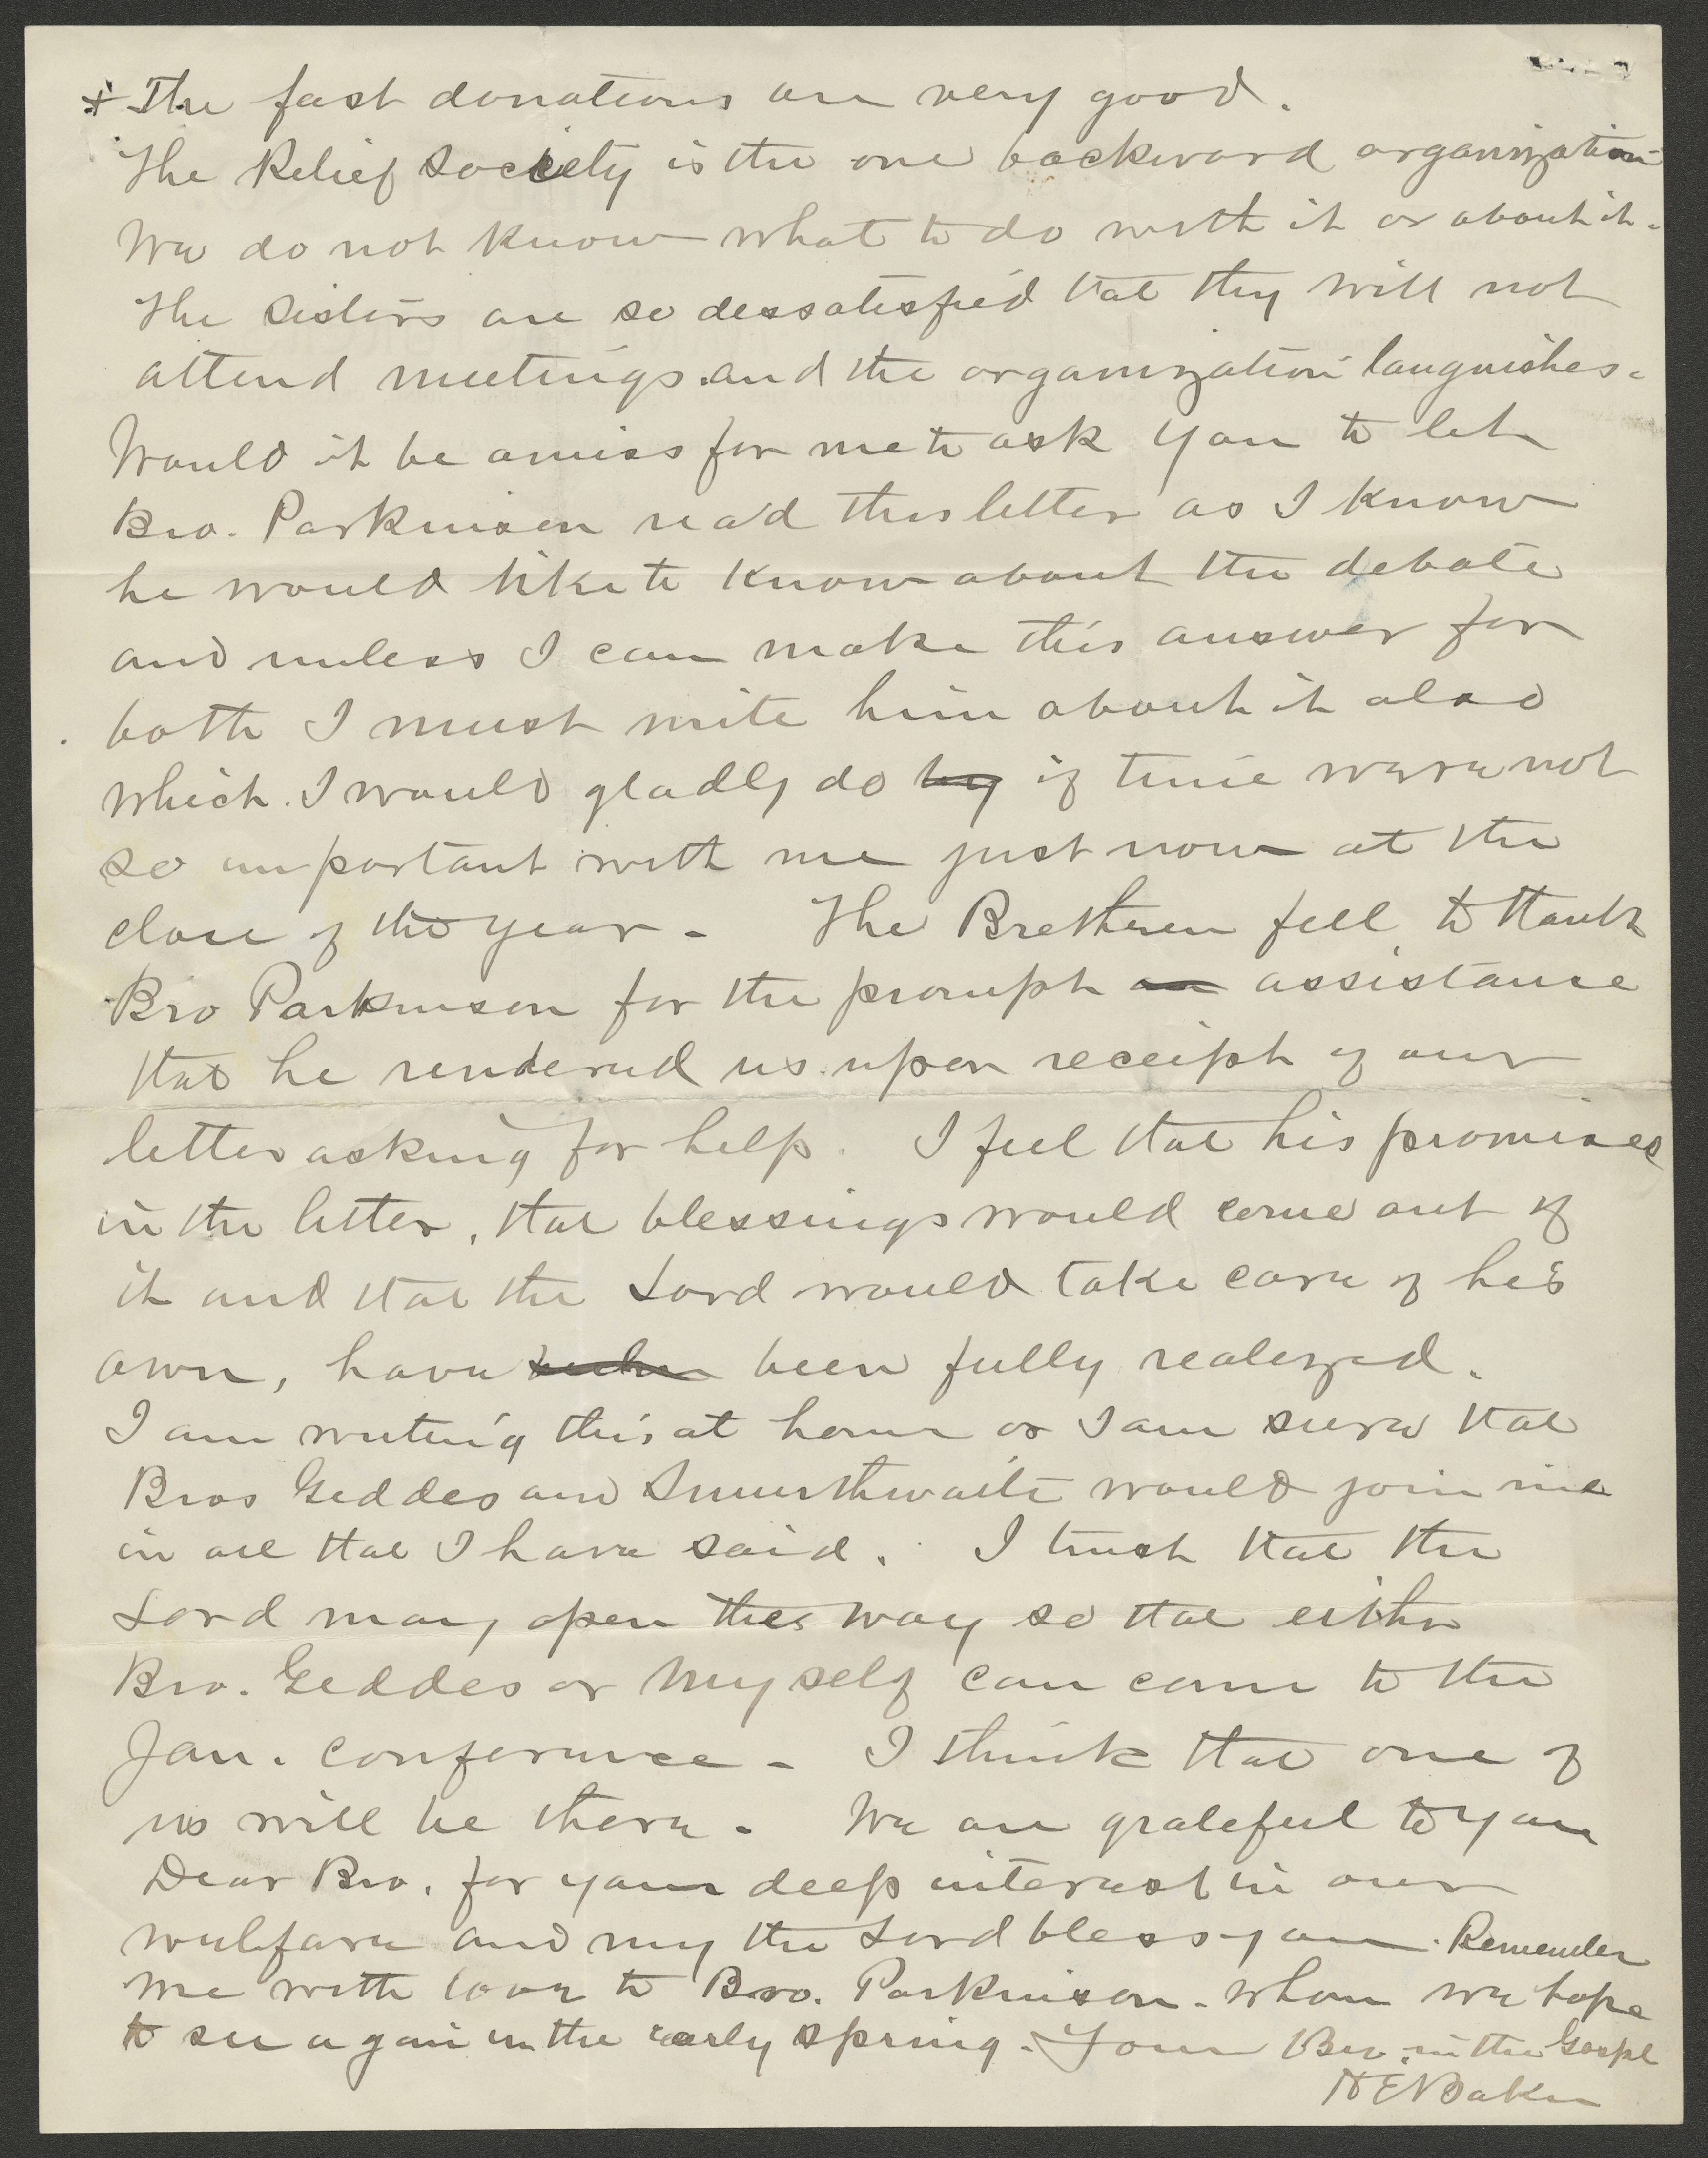 + The fast donations are very good.
The Relief Society is the one backward organization
We do not know what to do with it or about it.
The Sisters are so dessatisfied that they will not
attend meetings and the organization languishes.
Would it be amiss for me to ask you to let
Bro. Parkinson read this letter as I know
he would like to know about the debate
and unless I can make this answer for
both I must write him about it also
which I would gladly do by if time were not
so important with me just now at the
close of the year - The Brethren feel to thank
Bro Parkinson for the prompt as assistance
that he rendered us upon receipt of our
letter asking for help. I feel that his promises
in the letter, that blessings would come out of
it and that the Lord would take care of his
own, have been fully realized.
I am writing this at home or I am sure that
Bros Geddes and Smurthwaite would join me
in all that I have said. I trust that the
Lord may open the way so that either
Bro. Geddes or myself can come to the
Jan. conference - I think that one of
us will be there - We are grateful to you
Dear Bro. for your deep interest in our
wulfare and my the Lord bless you. Remember
me with love to Bro. Parkinson - whom we hope
to see again in the early spring. Your Bro. in the Gospel
H E Baker